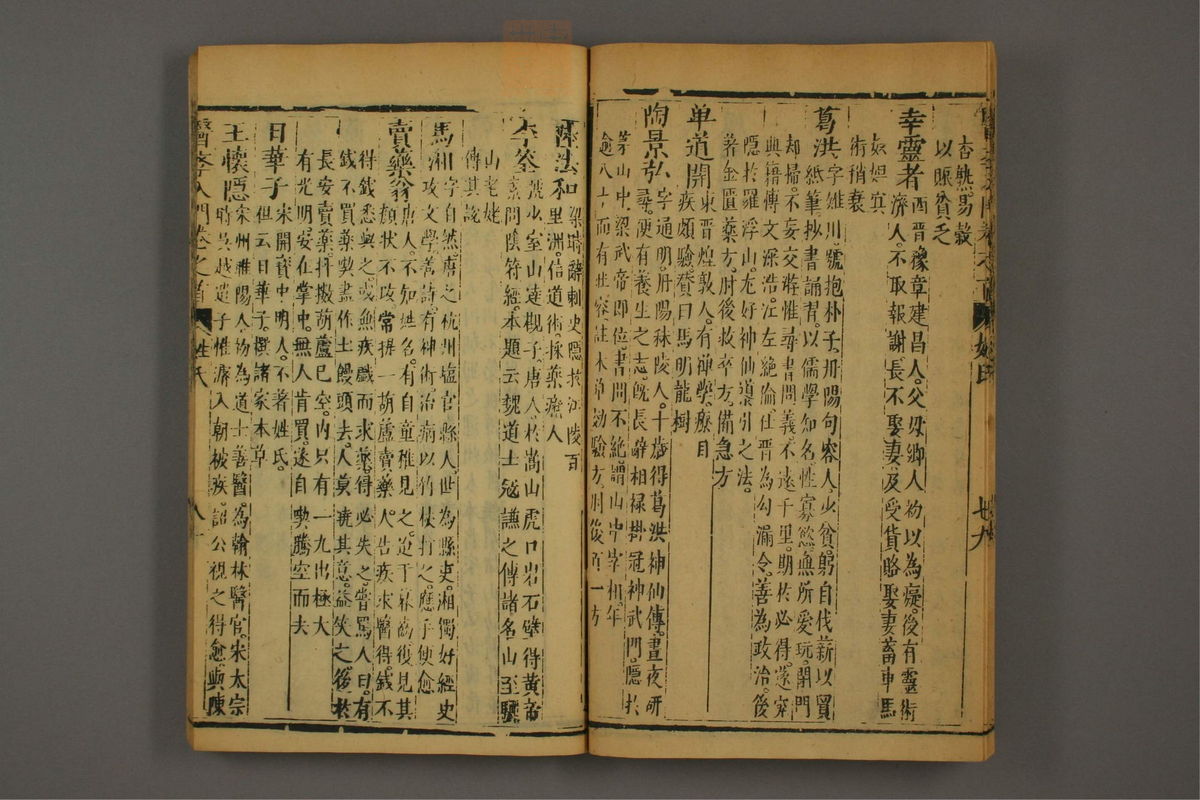 杏熟易穀
以賑貧乏
幸靈者西晉豫章建昌人父母鄉人初以為癡後有靈術
濟人不取報謝長不娶妻及受貨賂娶妻畜車馬
奴婢其
術稍衰
葛洪字雉川號抱朴子丹陽句容人少貧躬自伐薪以買
紙筆抄書誦習以儒學知名性寡慾無所愛玩閉門
却掃不妄交遊惟尋書問義不遠千里期於必得遂究
典籍傳文深浩江左絕倫仕晉為勾漏令善為政治後
隱於羅浮山尤好神仙導引之法
著金匱藥方肘後救卒方備急方
单道開東晉煌敦人有禪學療目
疾頗驗贊曰馬明龍樹
陶景弘字通明丹陽秣陵人十歲得葛洪神仙傳晝夜研
尋便有養生之志既長辭相祿掛冠神武門隱於
茅山中梁武帝即位書問不絕謂山中宰相年
逾八十而有壯容註本草効驗方肘後百一方
陸法和梁時辭刺史隱於江陵百
里洲信道術採藥療人
李筌號少室山達觀子唐人於嵩山虎口岩石壁得黃帝
素問陰符經本題云魏道士㓂謙之傳諸名山至驪
山老姥
傳其說
馬湘字自然唐之杭州塩官縣人世為縣吏湘獨好經史
攻文學善詩有神術治病以竹杖打之應手便愈
賣藥翁唐人不知姓名有自童稚見之迨于暮齒復見其
顏狀不改常提一葫蘆賣藥人告疾求醫得錢不
得錢悉與之或無疾戲而求藥得必失之嘗罵人曰有
錢不買藥喫盡作土饅頭去人莫曉其意益笑之後於
長安賣藥抖擻葫蘆已空內只有一丸出極大
有光明安在掌中無人肯買遂自喫騰空而去
日華子宋開寶中明人不著姓氏
但云日華子撰諸家本草
王懷隱宋州睢陽人初為道士善醫為翰林醫官宋太宗
時吳越遣子惟濬入朝被疾詔公視之得愈與陳
醫學入門卷之首 姓氏